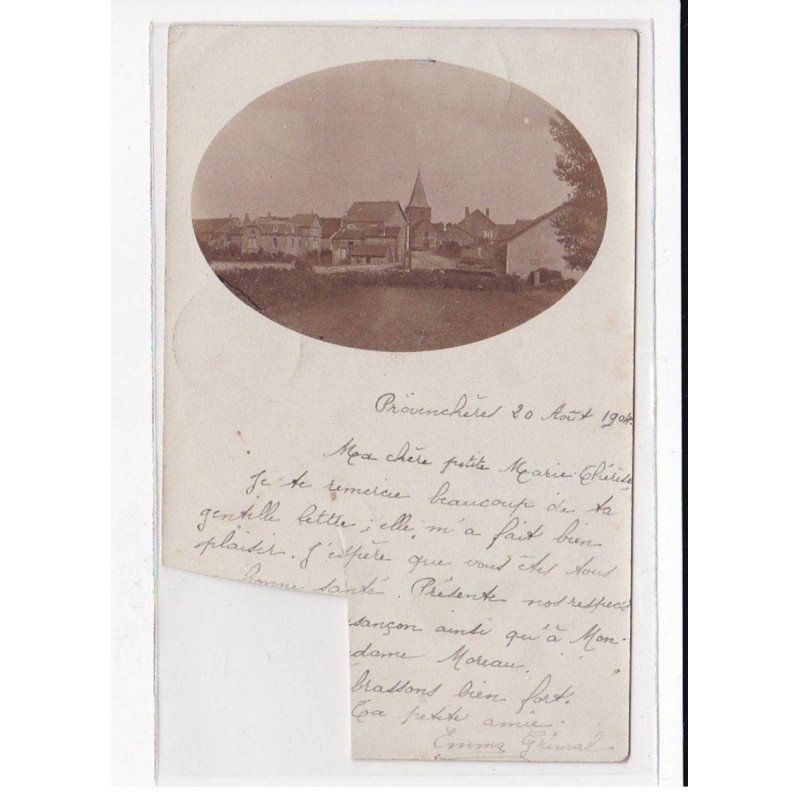 Provenchères 20 Août 1904.
Ma chère petite Marie-Thérèse,
Je te remercie beaucoup de ta
gentille lettre ; elle m'a fait bien
plaisir. J'espère que vous êtes tous
bonne santé. Présente nos respects
sançon ainsi qu'à Mon-
dame Moreau.
brassons bien fort.
Ta petite amie.
Emma Grimal